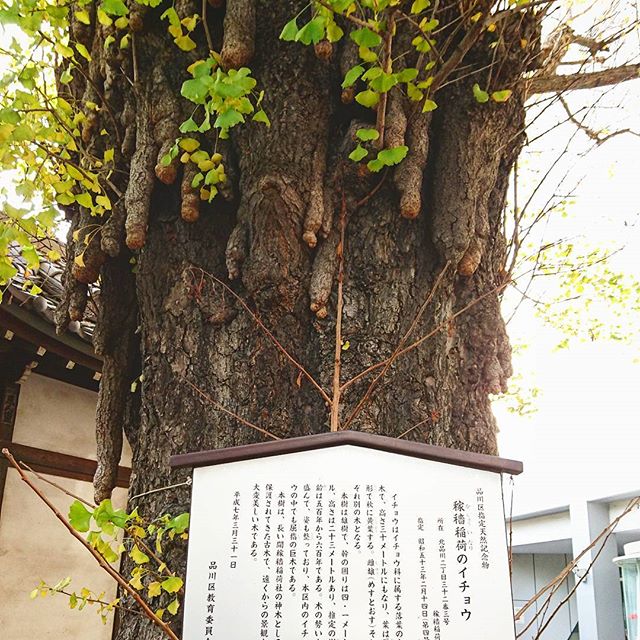 品川区指定天然記念物
かしょくいなり
稼穡稲荷のイチョウ
所在 北品川二丁目三十二番三号
稼穡稲荷
指定 昭和五十三年二月十四日(第四号
イチョウはイチョウ科に属する落葉の
木で、高さ三十メートルにもなり、葉は
形で秋に黄葉する。雌雄(めすとおす)そ
ぞれ別の木となる。
本樹は雄樹で、幹の囲りは四・一メー
ル、高さは二十三メートルあり、推定の
前は五百年から六百年である。木の勢い
盛んで、姿も整っており、本区内のイチ
ウの中でも屈指の巨木である。
本樹は、長い間稼穡稲荷社の神木とし
保護されてきた木で、遠くからの景観
大変美しい木である。
平成七年三月三十一日
品川区教育委員